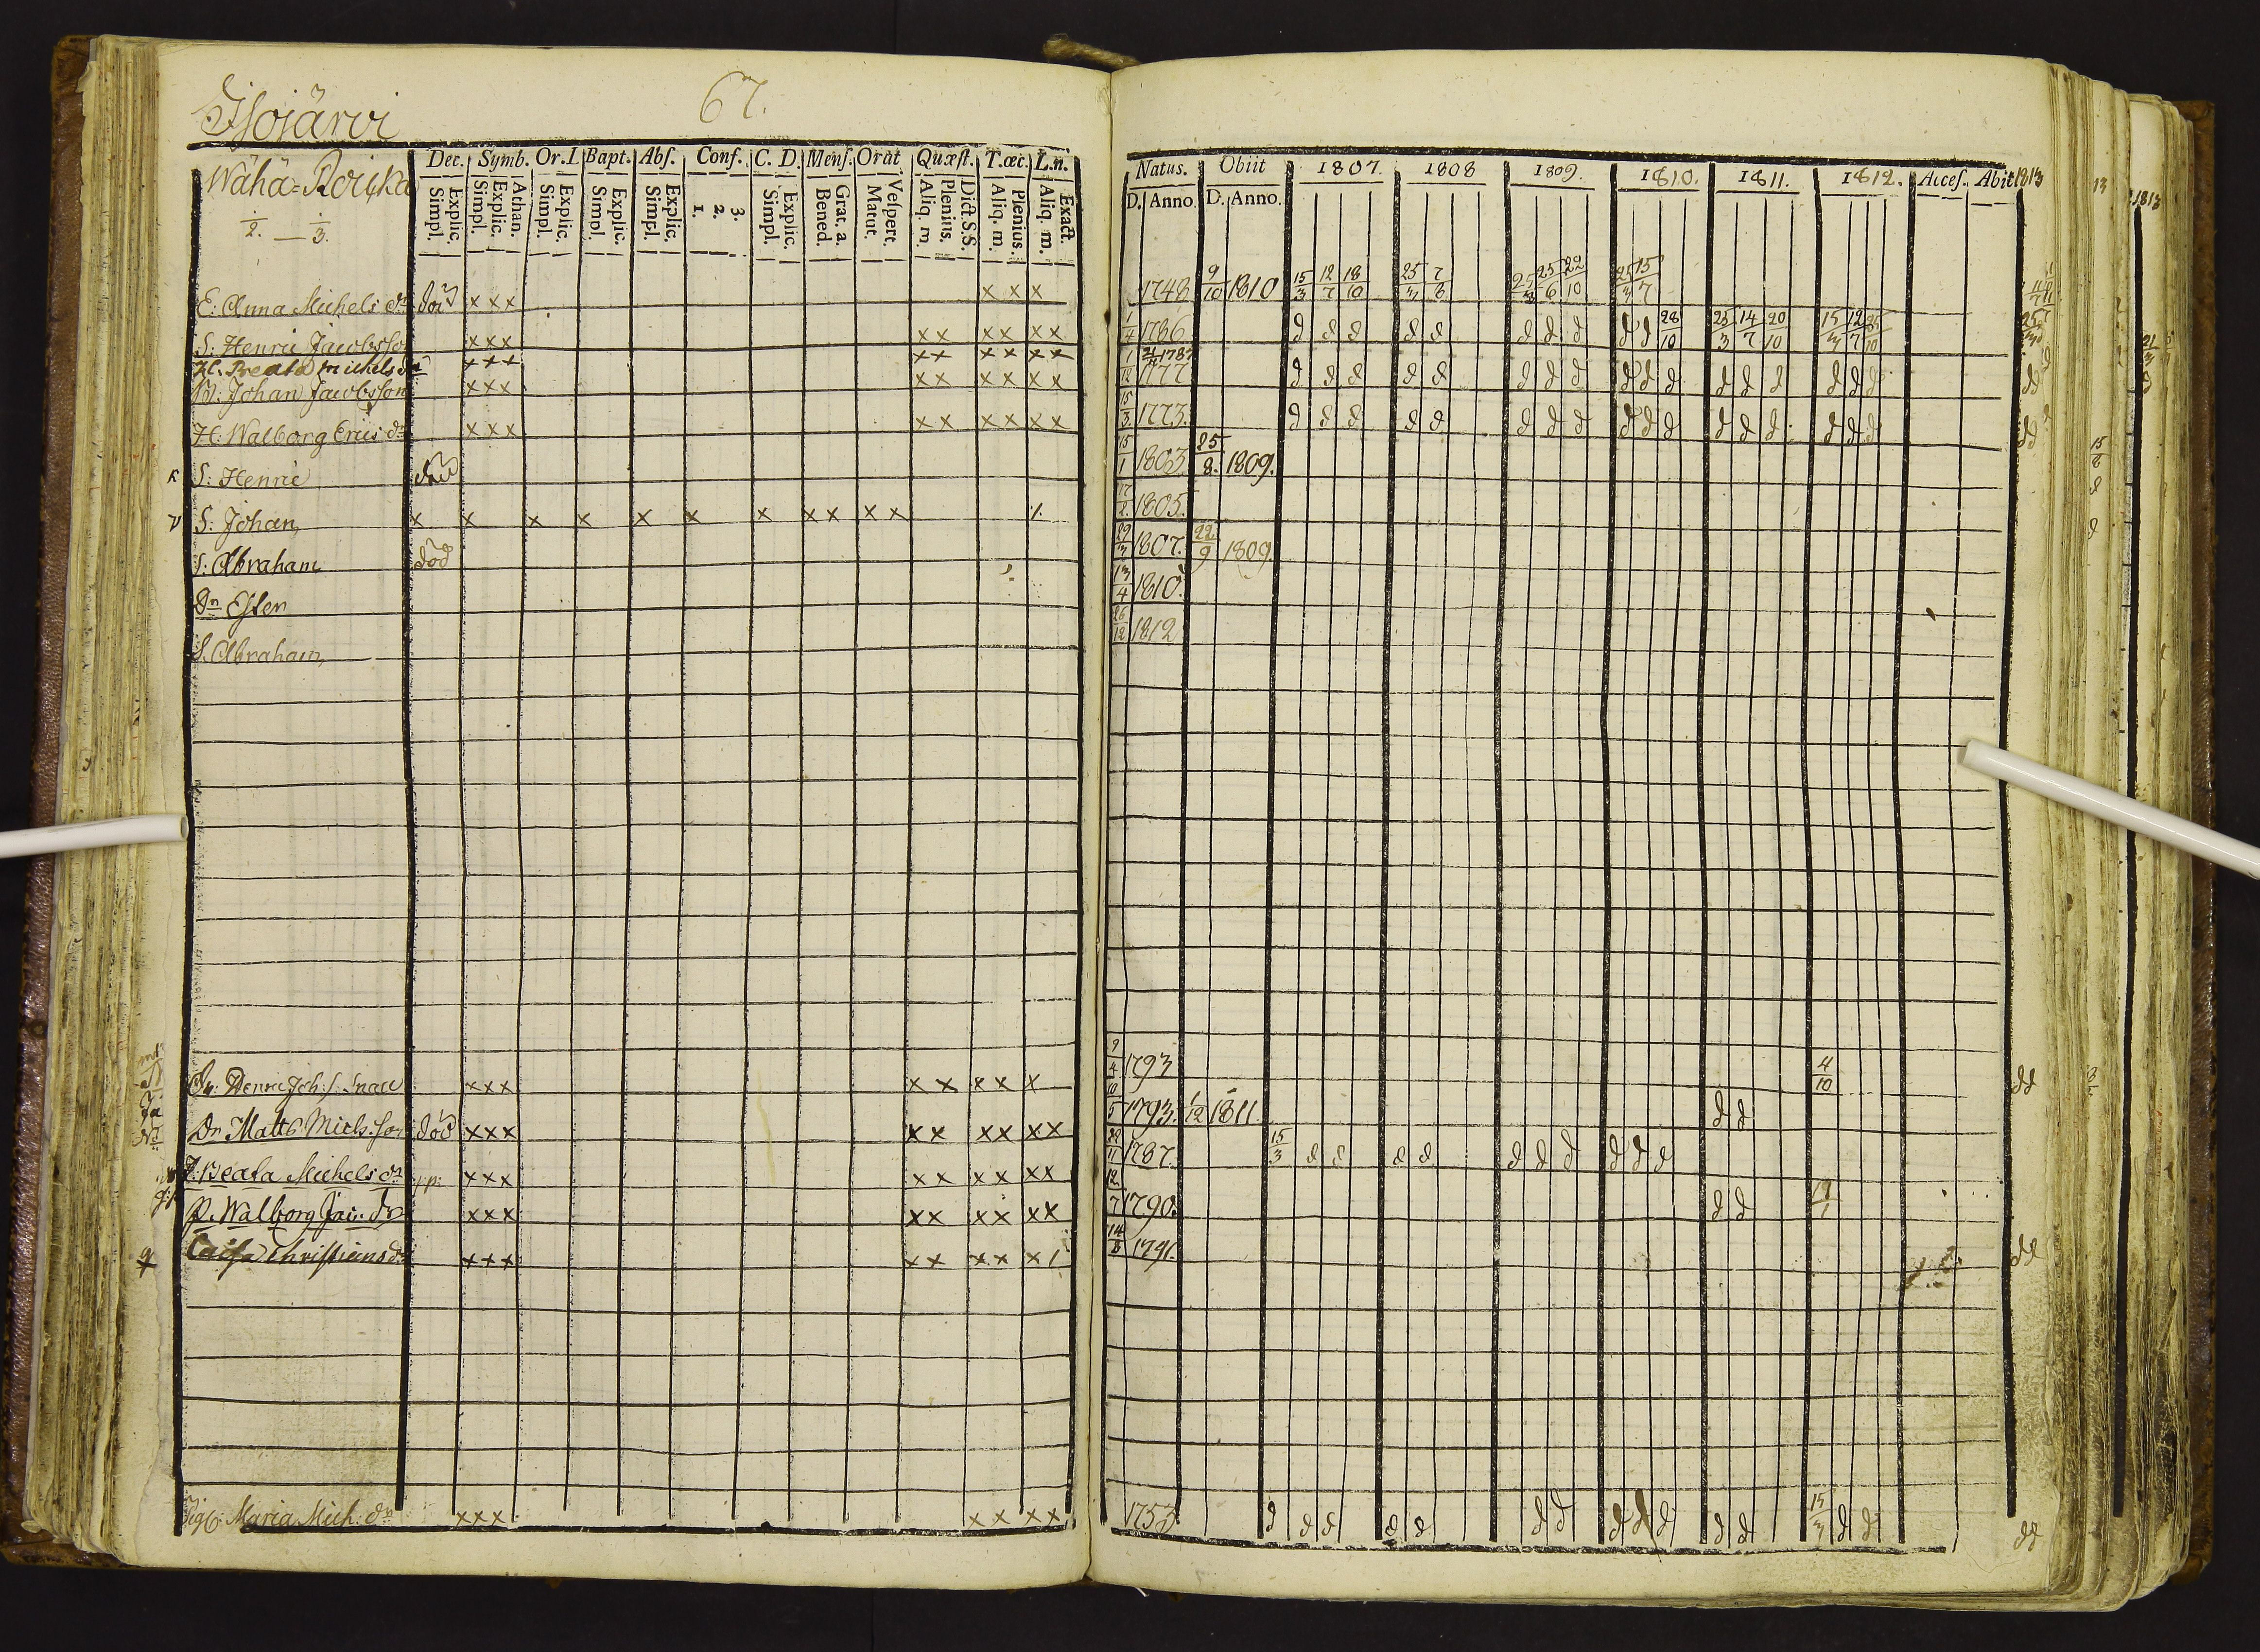 67.
Isojärvi
Dec. Symb. Or.I. Bapt. Abſ. Conf. C. D. Menſ. Orat Quæſt. T.œc. L.n.
Wähä=
Explic. Simpl. Athan. Explic. Simpl. Explic. Simpl. Explic. Simpl. Explic. Simpl. 3. 2. 1. Explic. Simpl. Grat. a. Bened. Veſpert. Matut. Dict. S.S. Plenius. Aliq. m. Plenius. Aliq. m. Exact. Aliq. m.
1/2. — 1/3.
E: Anna Michels dr död x x x x x x
S: Henric Jacobsson x x x x x x x x x
H. Beata Michels dr x x x x x x x x x
M: Johan Jacobsson x x x x x x x x x
H. Walborg Erics dr x x x x x x x x x
S: Henric död
S: Johan x x x x x x x x x x x
S: Abraham död
Dr Ester
S. Abraham
Dr: Henric Joh: s. x x x x x x x x
Dr Matts Mich. son död x x x x x x x x x
P: Beata Michels dr pp: x x x x x x x x x
P. Walborg dr x x x x x x x x x
Caisa Christians dr x x x x x x x x
Maria Mich. dr x x x x x x x
Natus. Obiit 1807. 1808 1809. 1810. 1811. 1812. Acceſ. Abit 1813
D. Anno. D. Anno.
1748 9/10 1810 15/3 12/7 18/10 25/3 7/8 25/3 25/6 22/10 25/3 15/7
1/4 1786 d d d d d d d d d d 28/10 25/3 14/7 20/10 15/3 12/7 25/10
1/12 1777 d d d d d d d d d d d d d d d d d
15/3 1773. d d d d d d d d d d d d d d d d d
15/1 1803 25/8. 1809.
17/2 1805.
29/3 1807. 22/9 1809.
13/4 1810.
26/12 1812
9/4 1793 4/10 dd
10/5 1793. 1/12 1811. d d
1787. 15/3 d d d d d d d d d d
12/7 1790. d d
14/8 1791. dd
1753 d d d d d d d d d d d d 15/3 d d dd